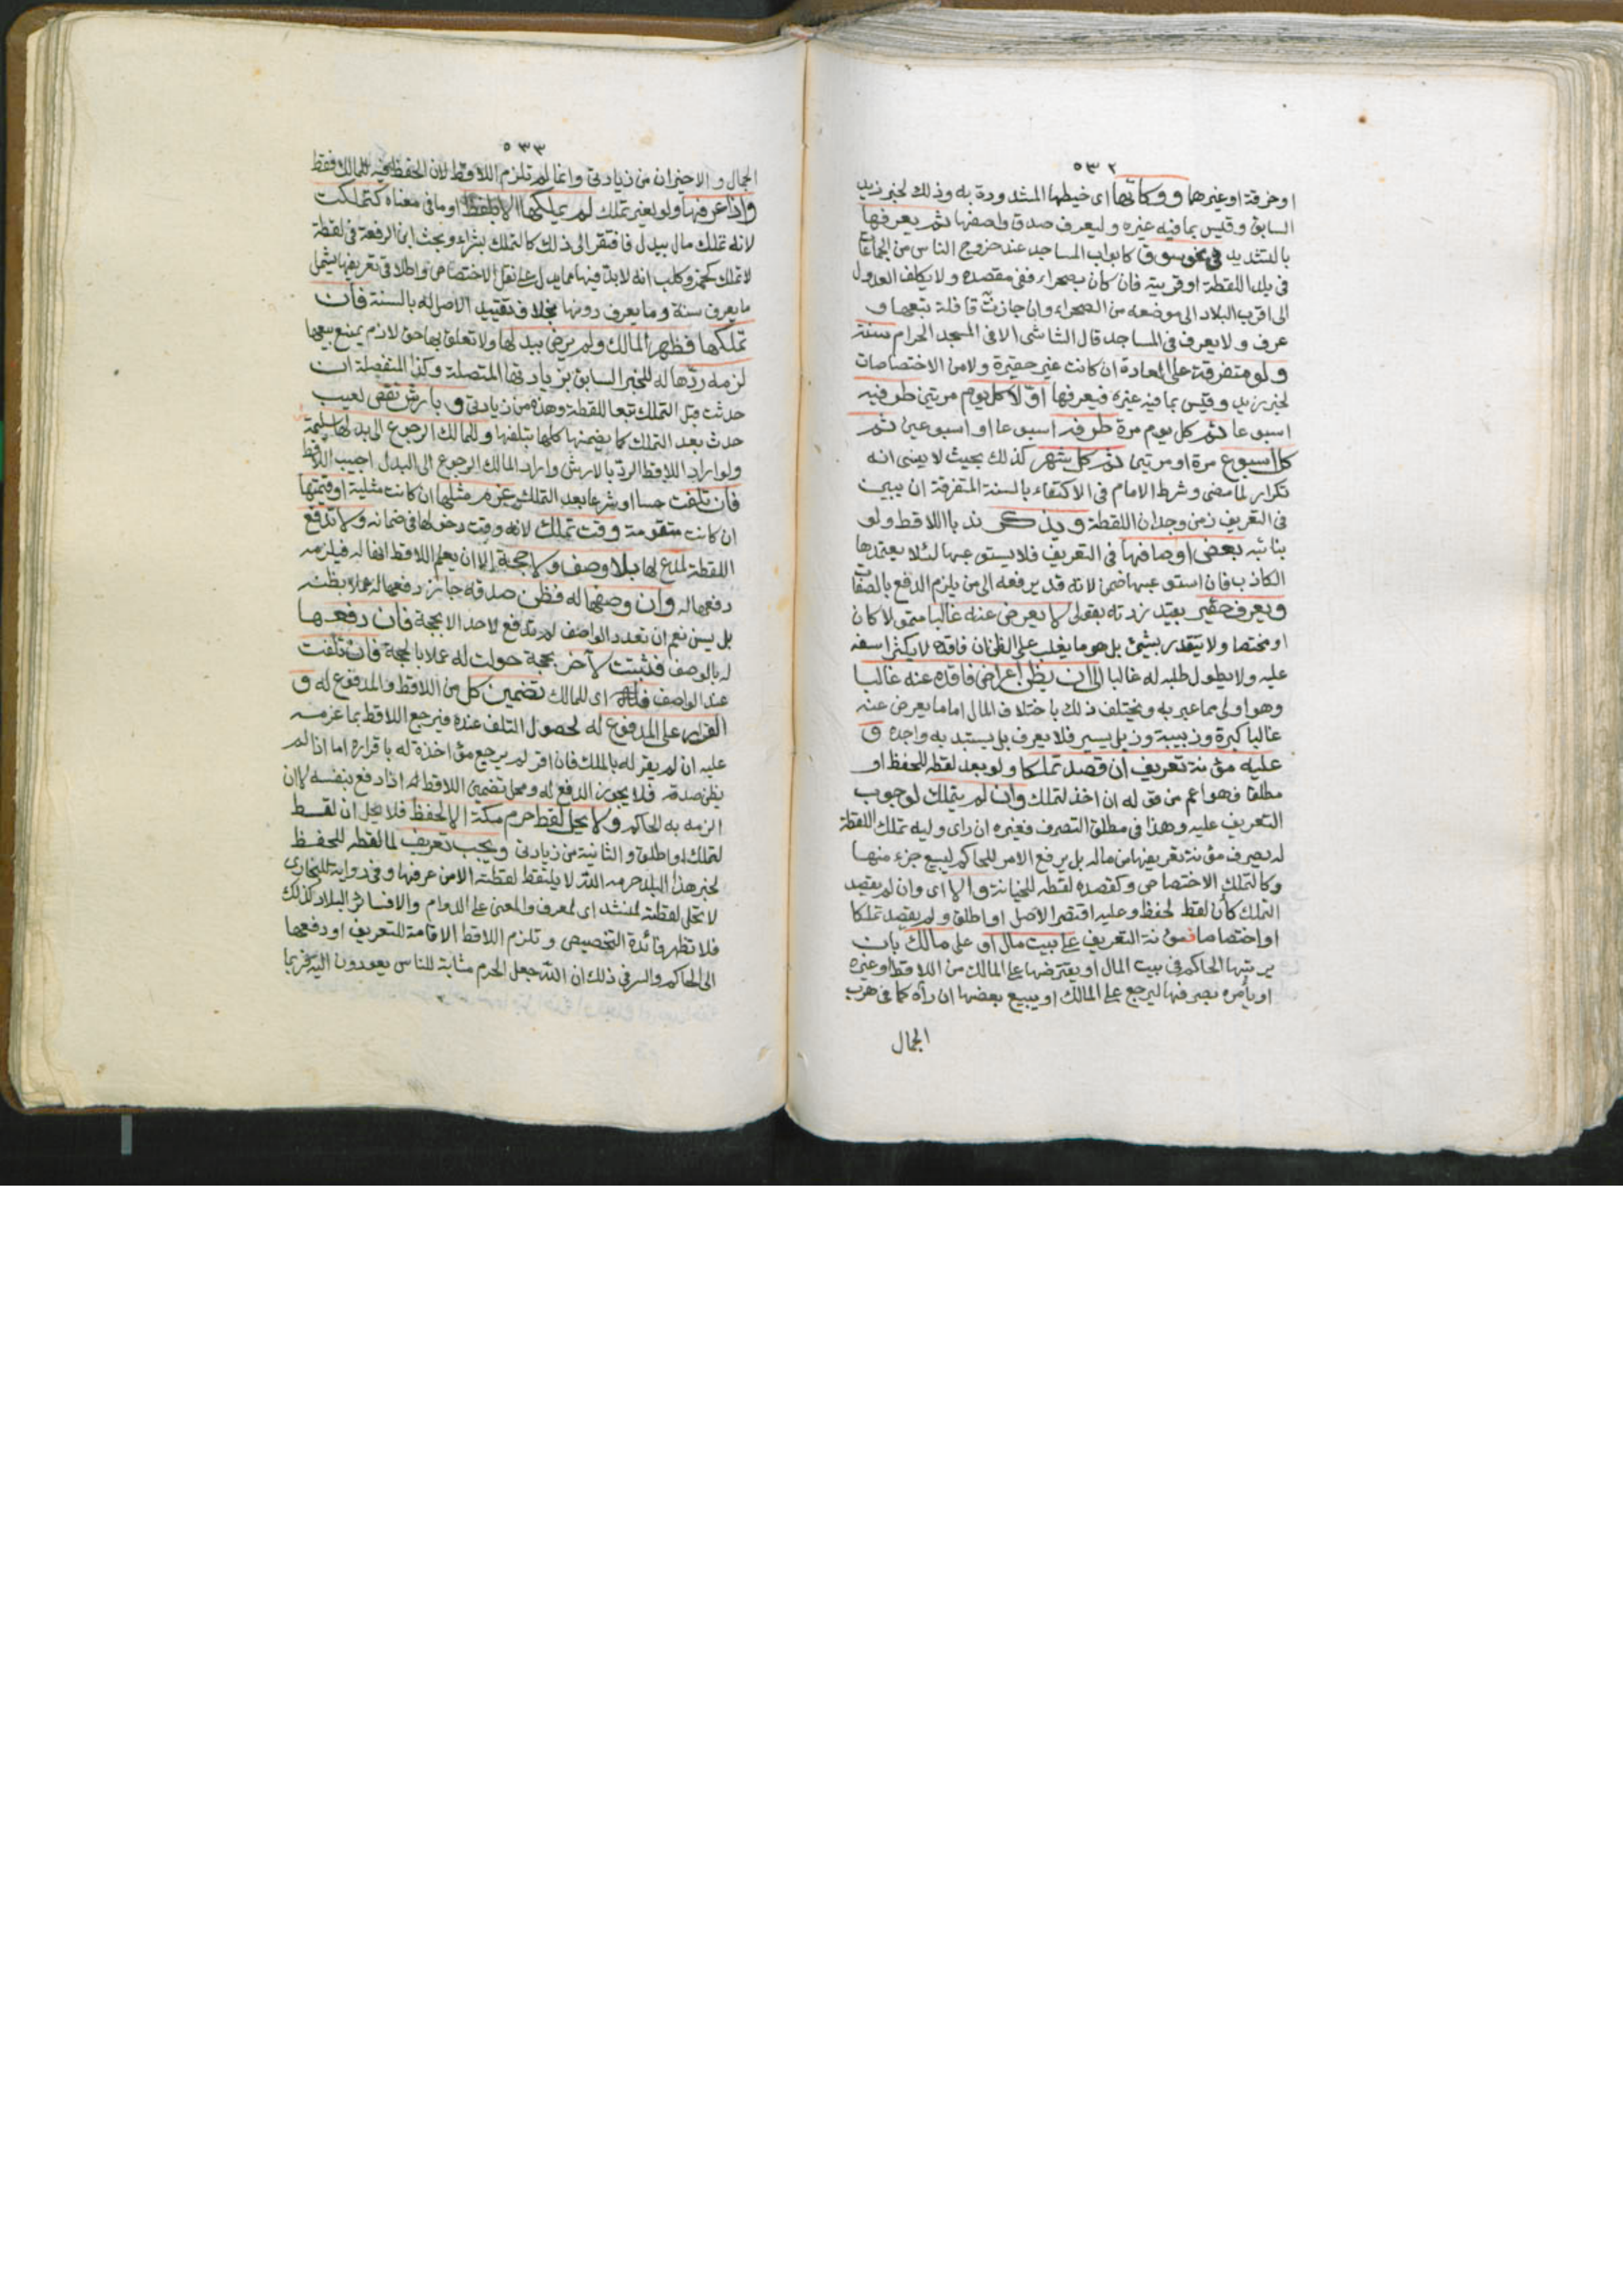 ٥٣٢
او خرقة او غيرهما ووكائها اى خيطها المشدودة به وذلك لخبر زيد
السابق وقيس بما فيه غيره وليعرف صدق واصفها ثم يعرفها
بالتشديد فى نحو سوق كابواب المساجد عند خروج الناس من الجماعات
فى بلد اللقطة او قريته فان كان بصحراء ففى مقصده ولا يكلف العدول
الى اقرب البلاد الى موضعه من الصحراء وان جازت قافلة تبعها و
عرف ولا يعرف فى المساجد قال الشاشى الا فى المسجد الحرام سنة
ولو متفرقة على العادة ان كانت غير حقيرة ولو من الاختصاصات
لخبر زيد وقيس بما فيه غيره فيعرفها اوّلا كل يوم مرتين طرفيه
اسبوعا ثم كل يوم مرة طرفه اسبوعا او اسبوعين ثم
كل اسبوع مرة او مرتين ثم كل شهر كذلك بحيث لا ينسى انه
تكرار لما مضى وشرط الامام فى الاكتفاء بالسنة المتفرقة ان يبين
فى التعريف زمن وجدان اللقطة ويذكر ندبا اللاقط ولو
بنائبه بعض اوصافها فى التعريف فلا يستوعبها لئلا يعتمدها
الكاذب فان استوعبها ضمن لانه قد يرفعه الى من يلزم الدفع بالصفات
ويعرف حقير بقيد زدته بقولى لا يعرض عنه غالبا متمولا كان
او مختصا ولا يتقدر بشىء بل هو ما يغلب على الظن ان فاقده لا يكثر اسفه
عليه ولا يطول طلبه له غالبا الى ان يظن اعراض فاقده عنه غالبا
وهو اولى مما عبر به ويختلف ذلك باختلاف المال اما ما يعرض عنه
غالبا كبرة وزبيبة وزبل يسير فلا يعرف بل يستبد به واجده و
عليه مؤنة تعريف ان قصد تملكا ولو بعد لقطه للحفظ او
مطلقا فهو اعم من قوله ان اخذ لتملك وان لم يتملك لوجوب
التعريف عليه وهذا فى مطلق التصرف فغيره ان راى وليه تملك اللقطة
له يصرف مؤنة تعريفها من ماله بل يرفع الامر للحاكم ليبيع جزء منها
وكالتملك الاختصاص وكقصده لقطه للخيانة والا اى وان لم يقصد
التملك كأن لقط لحفظ وعليه اقتصر الاصل او اطلق ولم يقصد تملكا
او اختصاصا فمؤنة التعريف على بيت مال او على مالك بان
يرتبها الحاكم فى بيت المال او يقترضها على المالك من اللاقط او غيره
او يأمره بصرفها ليرجع على المالك او يبيع بعضها ان رآه كما فى هرب
الجمال
٥٣٣
الجمال والاخيران من زيادتى وانما لم تلزم اللاقط لان الحفظ فيه للمالك فقط
واذا عرفها ولو لغير تملك لم يملكها الا بلفظ او ما فى معناه كتملكت
لانه تملك مال ببدل فافتقر الى ذلك كالتملك بشراء وبحث ابن الرفعة فى لقطة
لا تملك كخمر وكلب انه لا بد فيها مما يدل على نقل الاختصاص واطلاقى تعريفها يشمل
ما يعرف سنة وما يعرف دونها بخلاف تقييد الاصل له بالسنة فان
تملكها فظهر المالك ولم يرض ببدلها ولا تعلق بها حق لازم يمنع بيعها
لزمه ردّها له للخبر السابق بزيادتها المتصلة وكذا المنفصلة ان
حدثت قبل التملك تبعا للقطة وهذه من زيادتى وبارش نقص لعيب
حدث بعد التملك كما يضمنها كلها بتلفها وللمالك الرجوع الى بدلها سليمة
ولو اراد اللاقط الردّ بالارش واراد المالك الرجوع الى البدل اجيب اللاقط
فان تلفت حسا او شرعا بعد التملك غرم مثلها ان كانت مثلية او قيمتها
ان كانت متقومة وقت تملك لانه وقت دخولها فى ضمانه ولا تدفع
اللقطة لمدع لها بلا وصف ولا حجة الا ان يعلم اللاقط انها له فيلزمه
دفعها له وان وصفها له فظن صدقه جاز دفعها له عملا بظنه
بل يسن نعم ان تعدد الواصف لم تدفع لاحد الا بحجة فان دفعها
له بالوصف فثبتت لآخر بحجة حولت له عملا بالحجة فان تلفت
عند الواصف فله اى للمالك تضمين كل من اللاقط والمدفوع له و
القرار على المدفوع له لحصول التلف عنده فيرجع اللاقط بما غرمه
عليه ان لم يقر له بالملك فان اقر لم يرجع مؤاخذة له باقراره اما اذا لم
يظن صدقه فلا يجوز الدفع له ومحل تضمين اللاقط له اذا دفع بنفسه لا ان
الزمه به الحاكم ولا يحل لقط حرم مكة الا لحفظ فلا يحل ان لقط
لتملك او اطلق والثانية من زيادتى ويجب تعريف لما لقطه للحفظ
لخبر هذا البلد حرمه الله لا يلتقط لقطته الا من عرفها وفى رواية للبخارى
لا تحل لقطته الا لمنشد اى لمعرف والمعنى على الدوام والا فسائر البلاد كذلك
فلا تظهر فائدة التخصيص وتلزم اللاقط الاقامة للتعريف او دفعها
الى الحاكم والسر فى ذلك ان الله جعل الحرم مثابة للناس يعودون اليه فربما